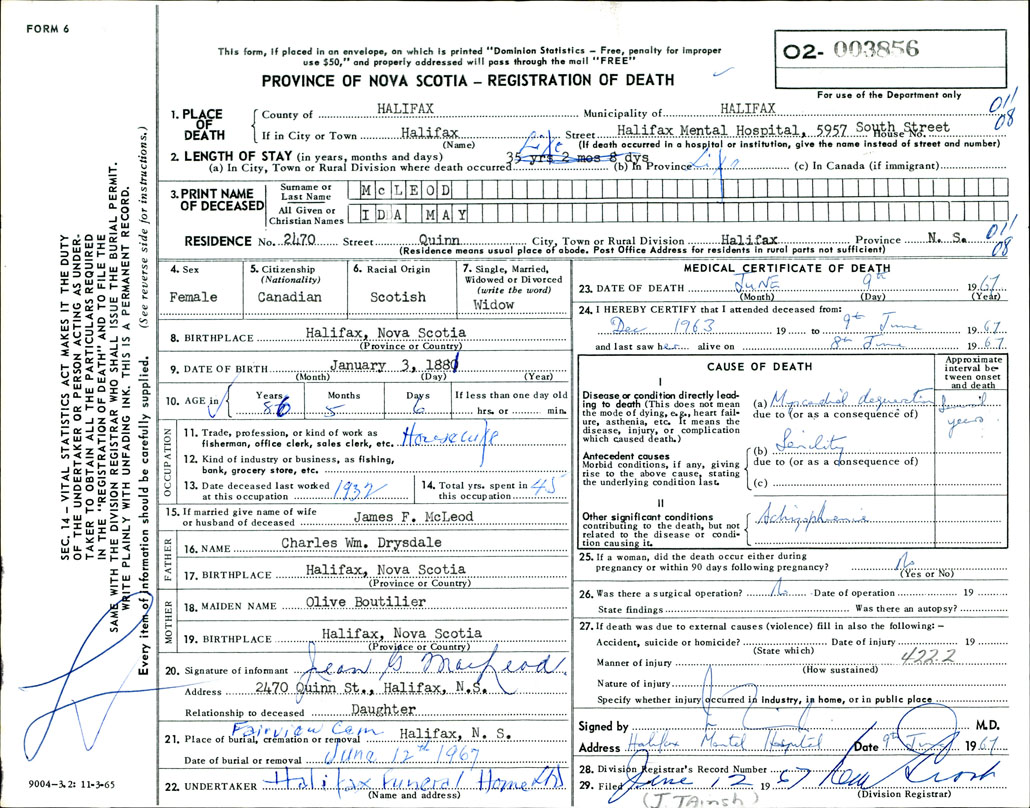 FORM 6
This form, if placed in an envelope, on which is printed "Dominion Statistics – Free, penalty for improper
use $50," and properly addressed will pass through the mail "FREE"
PROVINCE OF NOVA SCOTIA – REGISTRATION OF DEATH
O2- 003856
For use of the Department only
011
08
1. PLACE OF DEATH
County of HALIFAX Municipality of HALIFAX
If in City or Town Halifax Street Halifax Mental Hospital, 5957 South Street
(Name) House No.
(If death occurred in a hospital or institution, give the name instead of street and number)
2. LENGTH OF STAY (in years, months and days) Life
(a) In City, Town or Rural Division where death occurred 35 yrs 2 mos 8 dys (b) In Province Life (c) In Canada (if immigrant)
3. PRINT NAME OF DECEASED
Surname or Last Name McLEOD
All Given or Christian Names IDA MAY
RESIDENCE No. 2470 Street Quinn City, Town or Rural Division Halifax Province N. S. 011
08
(Residence means usual place of abode. Post Office Address for residents in rural parts not sufficient)
4. Sex
Female
5. Citizenship
(Nationality)
Canadian
6. Racial Origin
Scotish
7. Single, Married,
Widowed or Divorced
(write the word)
Widow
8. BIRTHPLACE Halifax, Nova Scotia
(Province or Country)
9. DATE OF BIRTH January 3, 1881
(Month) (Day) (Year)
10. AGE in
Years 86
Months 5
Days 6
If less than one day old
hrs. or min.
OCCUPATION
11. Trade, profession, or kind of work as
fisherman, office clerk, sales clerk, etc. Housewife
12. Kind of industry or business, as fishing,
bank, grocery store, etc.
13. Date deceased last worked
at this occupation 1932
14. Total yrs. spent in
this occupation 45
15. If married give name of wife
or husband of deceased James F. McLeod
FATHER
16. NAME Charles Wm. Drysdale
17. BIRTHPLACE Halifax, Nova Scotia
(Province or Country)
MOTHER
18. MAIDEN NAME Olive Boutilier
19. BIRTHPLACE Halifax, Nova Scotia
(Province or Country)
20. Signature of informant Jean G MacLeod.
Address 2470 Quinn St., Halifax, N.S.
Relationship to deceased Daughter
21. Place of burial, cremation or removal Fairview Cem Halifax, N. S.
Date of burial or removal June 12th 1967
22. UNDERTAKER Halifax Funeral Home Ltd
(Name and address)
MEDICAL CERTIFICATE OF DEATH
23. DATE OF DEATH JUNE 9th 1967
(Month) (Day) (Year)
24. I HEREBY CERTIFY that I attended deceased from:
Dec 1963 19 to 9th June 1967
and last saw her alive on 8th June 1967
CAUSE OF DEATH
Approximate
interval be-
tween onset
and death
I
Disease or condition directly lead-
ing to death (This does not mean
the mode of dying, e.g., heart fail-
ure, asthenia, etc. It means the
disease, injury, or complication
which caused death.)
(a) Myocardial degeneration Several years
due to (or as a consequence of)
Antecedent causes
Morbid conditions, if any, giving
rise to the above cause, stating
the underlying condition last.
(b) Senility
due to (or as a consequence of)
(c)
II
Other significant conditions
contributing to the death, but not
related to the disease or condi-
tion causing it.
Schizophrenia
25. If a woman, did the death occur either during
pregnancy or within 90 days following pregnancy? No
(Yes or No)
26. Was there a surgical operation? No Date of operation 19
State findings Was there an autopsy?
27. If death was due to external causes (violence) fill in also the following: –
Accident, suicide or homicide? Date of injury 19
(State which)
Manner of injury 422.2
(How sustained)
Nature of injury
Specify whether injury occurred in industry, in home, or in public place
Signed by M.D.
Address Halifax Mental Hospital Date 9th June 1967
28. Division Registrar's Record Number
29. Filed June 12 1967
(Division Registrar)
(J. TAINSH)
SEC. 14 – VITAL STATISTICS ACT MAKES IT THE DUTY
OF THE UNDERTAKER OR PERSON ACTING AS UNDER-
TAKER TO OBTAIN ALL THE PARTICULARS REQUIRED
IN THE "REGISTRATION OF DEATH" AND TO FILE THE
SAME WITH THE DIVISION REGISTRAR WHO SHALL ISSUE THE BURIAL PERMIT.
WRITE PLAINLY WITH UNFADING INK. THIS IS A PERMANENT RECORD.
Every item of information should be carefully supplied. (See reverse side for instructions.)
9004-3.2: 11-3-65